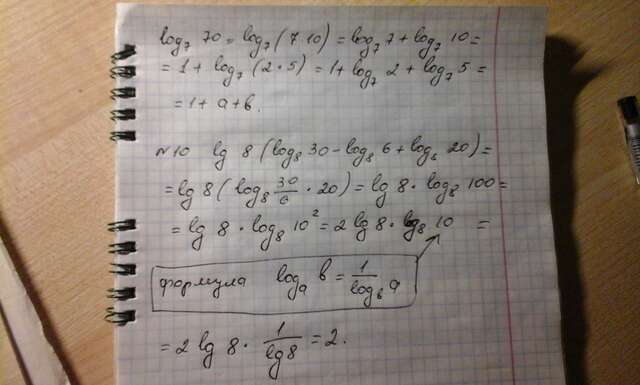 log₇ 70 = log₇ (7·10) = log₇ 7 + log₇ 10 =
= 1 + log₇ (2·5) = 1 + log₇ 2 + log₇ 5 =
= 1 + a + b.
№10 lg 8 (log₈ 30 - log₈ 6 + log₈ 20) =
= lg 8 (log₈ 30/6 · 20) = lg 8 · log₈ 100 =
= lg 8 · log₈ 10² = 2 lg 8 · log₈ 10 =
формула logₐ b = 1/log_b a
= 2 lg 8 · 1/lg 8 = 2.